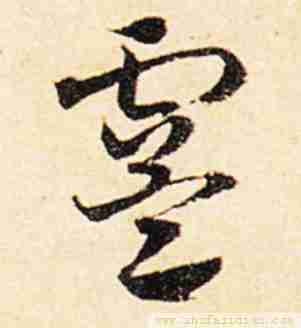 虚
www.shufazidian.com